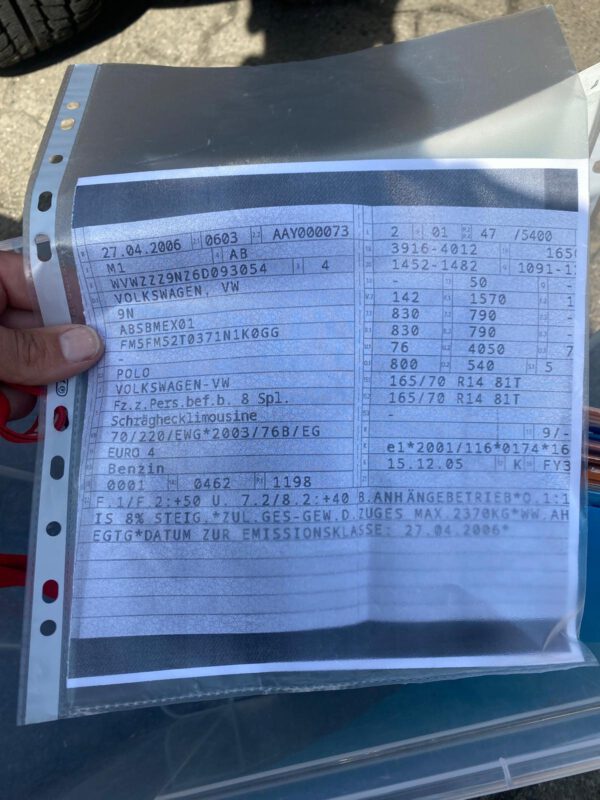 27.04.2006 0603 AAY000073 2 01 47 /5400
M1 AB 3916-4012 165
WVWZZZ9NZ6D093054 4 1452-1482 1091-1
VOLKSWAGEN, VW - 50 -
9N 142 1570 1
ABSBMEX01 830 790 -
FM5FM52T0371N1K0GG 830 790 -
- 76 4050 7
POLO 800 540 5
VOLKSWAGEN-VW 165/70 R14 81T
Fz.z.Pers.bef.b. 8 Spl. 165/70 R14 81T
Schräghecklimousine -
70/220/EWG*2003/76B/EG 9/-
EURO 4 e1*2001/116*0174*16
Benzin 15.12.05 K FY3
0001 0462 1198
F.1/F 2:+50 U. 7.2/8.2:+40 B.ANHÄNGEBETRIEB*O.1:1
IS 8% STEIG.*ZUL.GES-GEW.D.ZUGES MAX.2370KG*WW.AH
EGTG*DATUM ZUR EMISSIONSKLASSE: 27.04.2006*